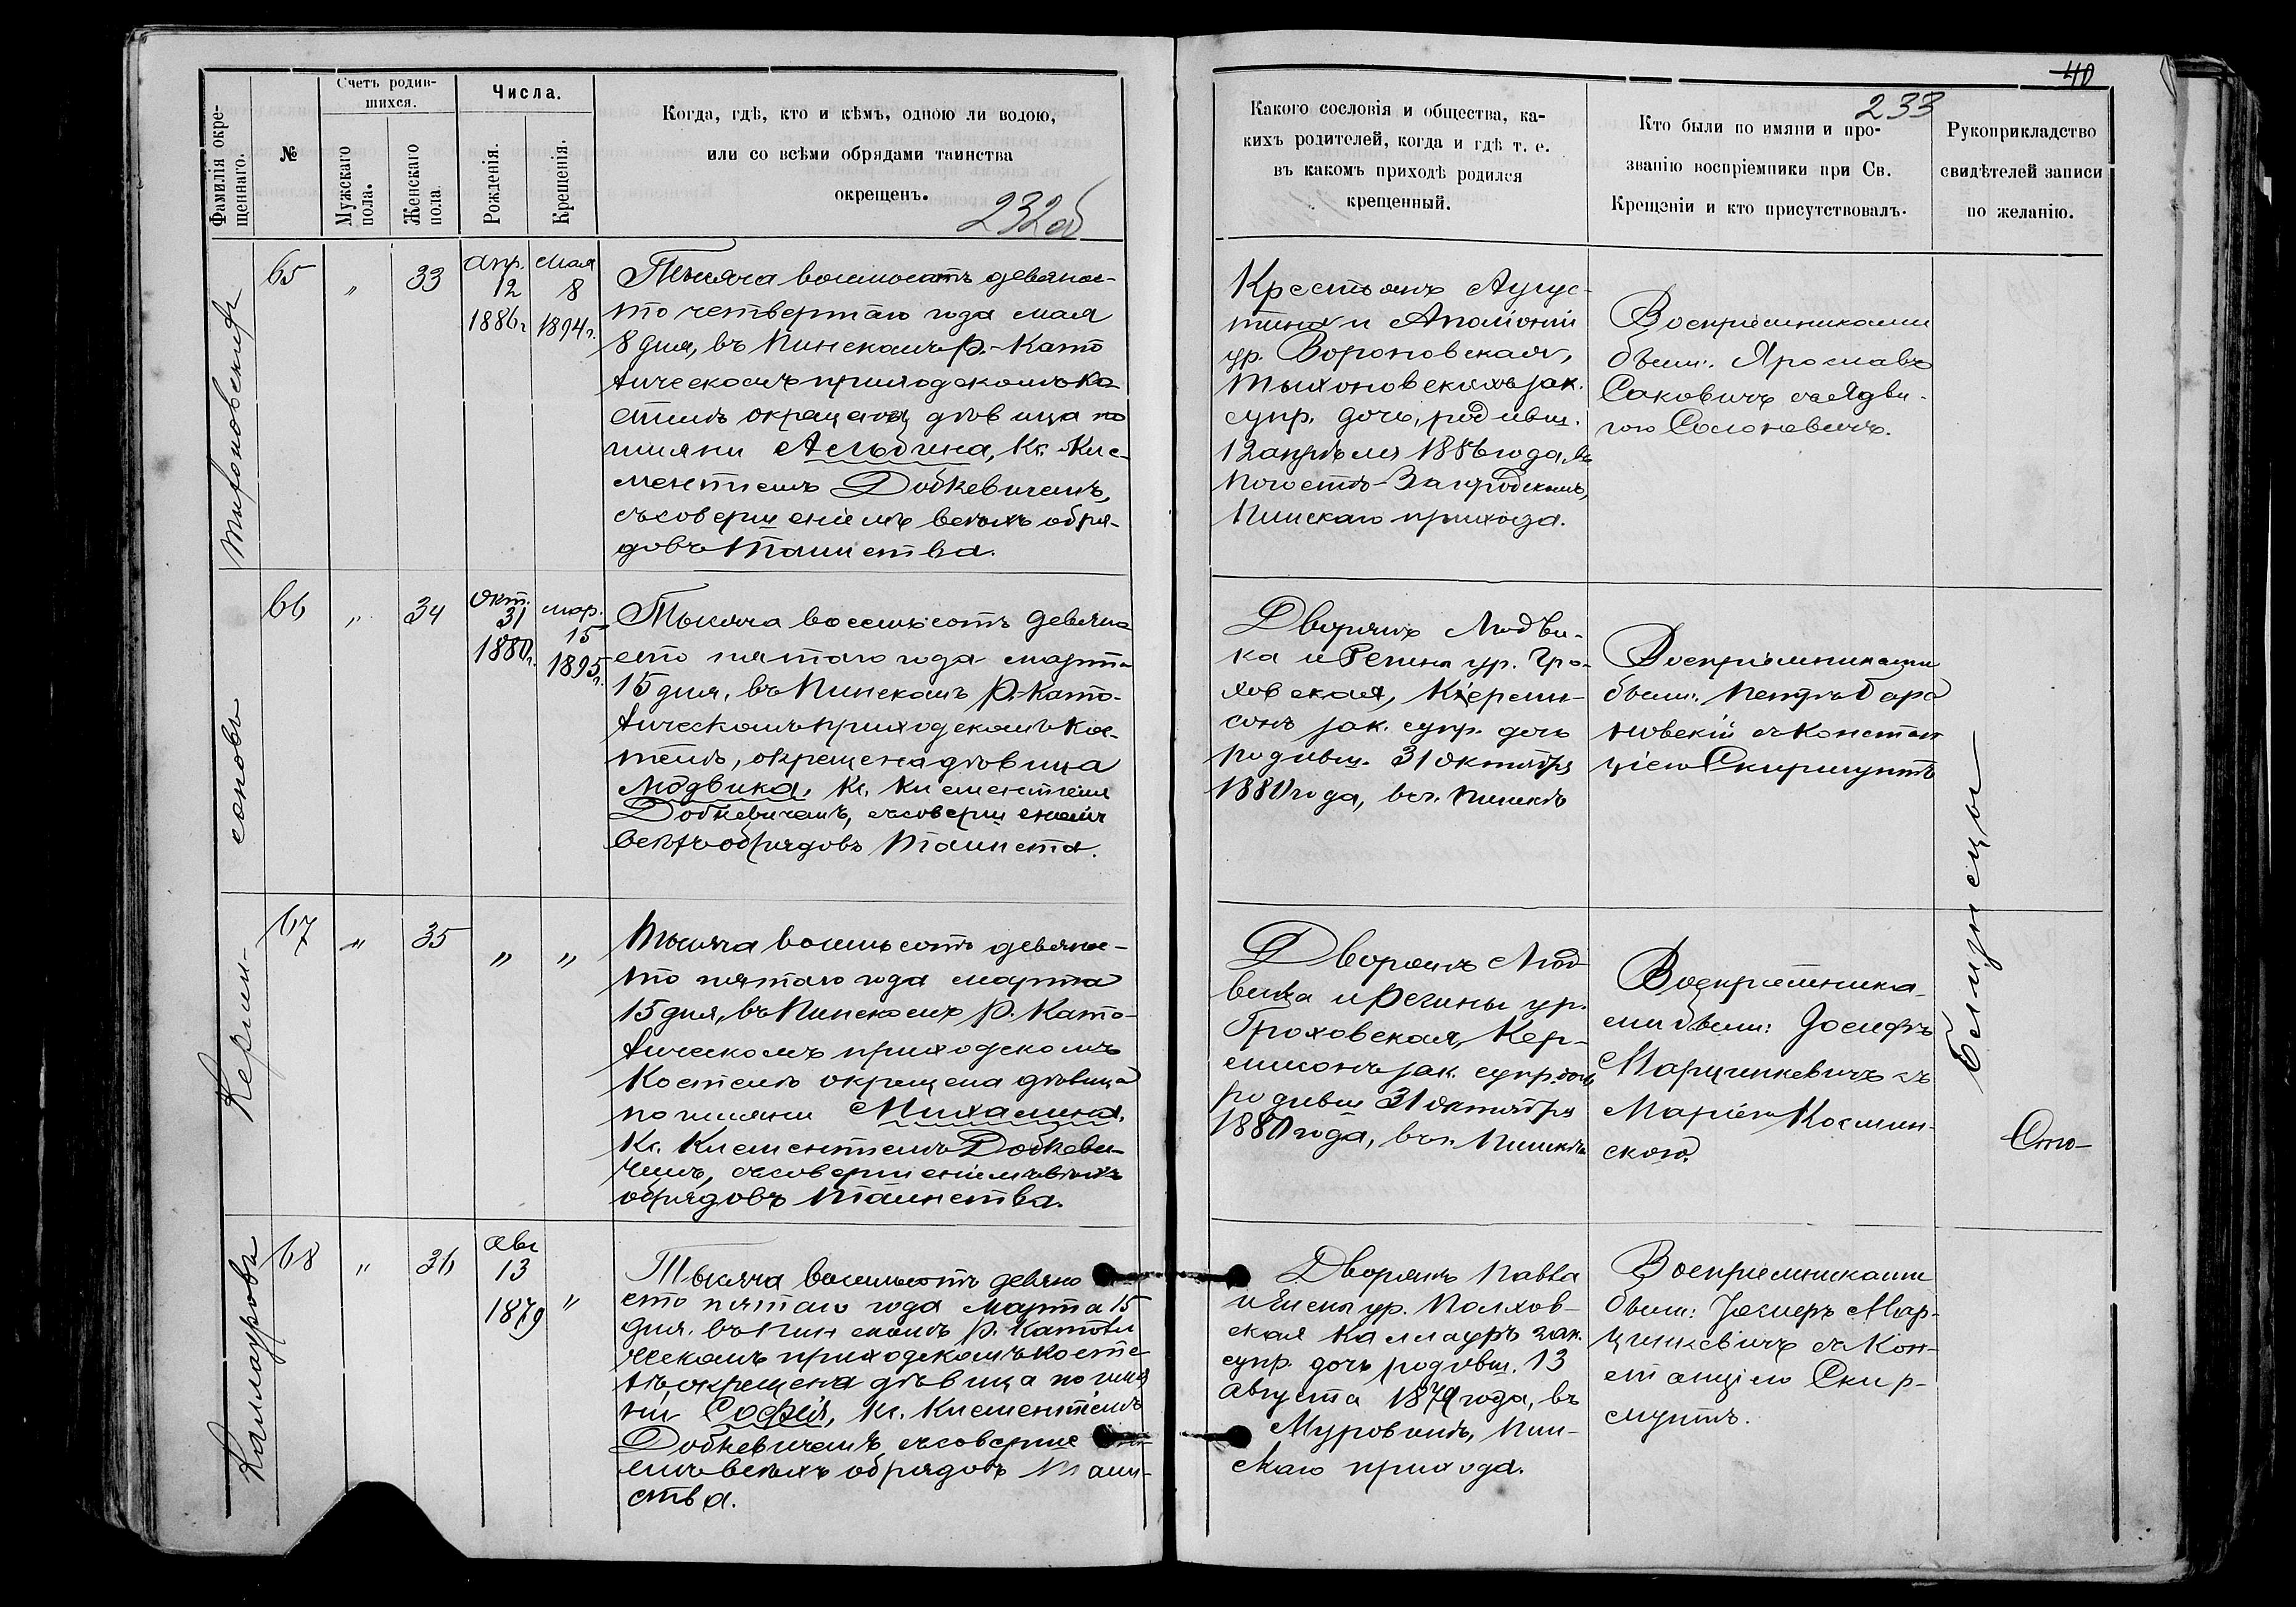 40
233
232об
Фамилія окре-
щеннаго.
№
Счетъ родив-
шихся.
Мужскаго
пола.
Женскаго
пола
Числа.
Рожденія.
Крещенія.
Когда, гдѣ, кто и кѣмъ, одною ли водою,
или со всѣми обрядами таинства
окрещенъ.
Какого сословія и общества, ка-
кихъ родителей, когда и гдѣ т. е.
въ какомъ приходѣ родился
крещенный.
Кто были по имяни и про-
званію воспріемники при Св.
Крещэніи и кто присутствовалъ.
Рукоприкладство
свидѣтелей записи
по желанію.
65
"
33
Апр.
12
1886г
Мая
8
1894г.
Тысяча восмьсотъ девянос-
то четвертаго года мая
8 дня, въ Пинскомъ Р.-Като
лическомъ приходскомъ Ко
стелѣ окрещена дѣвица по
имяни Альбина, Кс. Кле-
ментіемъ Добкевичемъ,
съ совершеніемъ всѣхъ обря-
довъ Таинства.
Крестьянъ Авгус-
тина и Аполіоніи
ур. Вороновская,
зак.
супр. дочь, родивш.
12 апрѣля 1886 года, въ
Погостѣ-Загородскомъ,
Пинскаго прихода.
Воспріемниками
были: Ярославъ
Саковичъ съ Ядви-
гою Солоневичъ.
66
"
34
Окт.
31
1880г.
мар.
15
1895г.
Тысяча восемьсотъ девяно
сто пятаго года марта
15 дня, въ Пинскомъ Р.-Като-
лическомъ приходскомъ Кос-
телѣ, окрещена дѣвица
Людвика, Кс. Климентіем
Добкевичемъ, съ совершеніемъ
всѣхъ обрядовъ Таинств.
Дворянъ Людви-
ка и Регины ур. Гро-
ховская, Кермы-
сонъ зак. супр. дочь
родивш. 31 октября
1880 года, въ г. Пинскѣ
Воспріемниками
были: Петръ Бара
новскій съ Констан
ціею Скирмунтъ
67
"
35
"
"
Тысяча восемьсотъ девянос-
то пятаго года марта
15 дня, въ Пинскомъ Р. Като-
лическомъ приходскомъ
Костелѣ окрещена дѣвица
по имяни Михалина,
Кс. Климентіемъ Добкеви-
чемъ, съ совершеніемъ всѣхъ
обрядовъ Таинства.
Дворянъ Люд-
вика и Регины ур.
Гроховская, Кер-
мисонъ зак. супр. дочь
родивш 31 октября
1880 года, въ г. Пинскѣ
Воспріемника-
ми были: Іосифъ
Марцинкевичъ съ
Маріею Космин-
скою.
близнецы
68
"
36
Авг
13
1879
"
Тысяча восемьсотъ девяно
сто пятаго года Марта 15
дня. въ Пинскомъ Р. Католи
ческомъ приходскомъ косте-
лѣ, окрещена дѣвица по имя
ни Софія, Кс. Климентіемъ
Добкевичемъ, съ соверше
емъ всѣхъ обрядовъ Таин-
ства.
Дворянъ Павла
и Елены ур. Полхов-
ская Каллауръ зак.
супр. дочь родивш. 13
Августа 1879 года, въ
Муровинѣ, Пин-
скаго прихода.
Воспріемниками
были: Мар-
цинкевичъ съ Кон-
станціею Скир-
мунтъ.
Каллауровъ